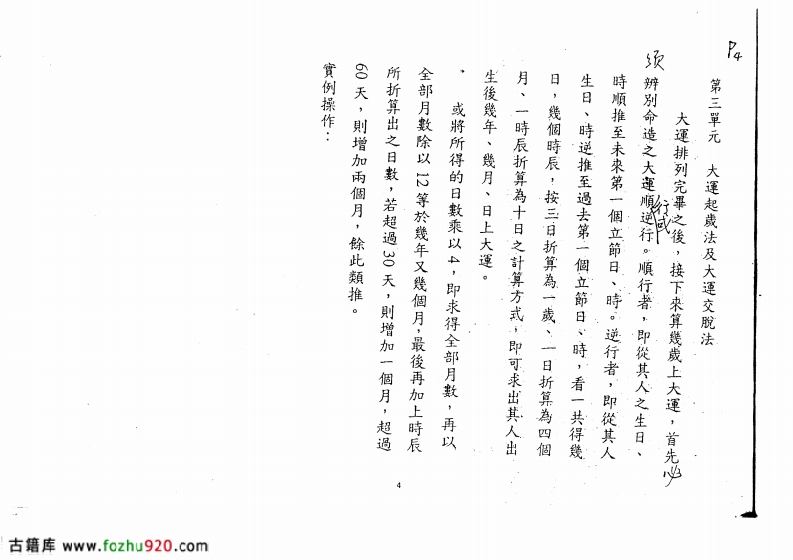 P4
第三單元　大運起歲法及大運交脫法
大運排列完畢之後，接下來算幾歲上大運，首先必
須辨別命造之大運順行或逆行。順行者，即從其人之生日、
時順推至未來第一個立節日、時。逆行者，即從其人
生日、時逆推至過去第一個立節日、時，看一共得幾
日，幾個時辰，按三日折算為一歲、一日折算為四個
月、一時辰折算為十日之計算方式，即可求出其人出
生後幾年、幾月、日上大運。
或將所得的日數乘以4，即求得全部月數，再以
全部月數除以12等於幾年又幾個月，最後再加上時辰
所折算出之日數，若超過30天，則增加一個月，超過
60天，則增加兩個月，餘此類推。
實例操作：
4
古籍库 www.fozhu920.com